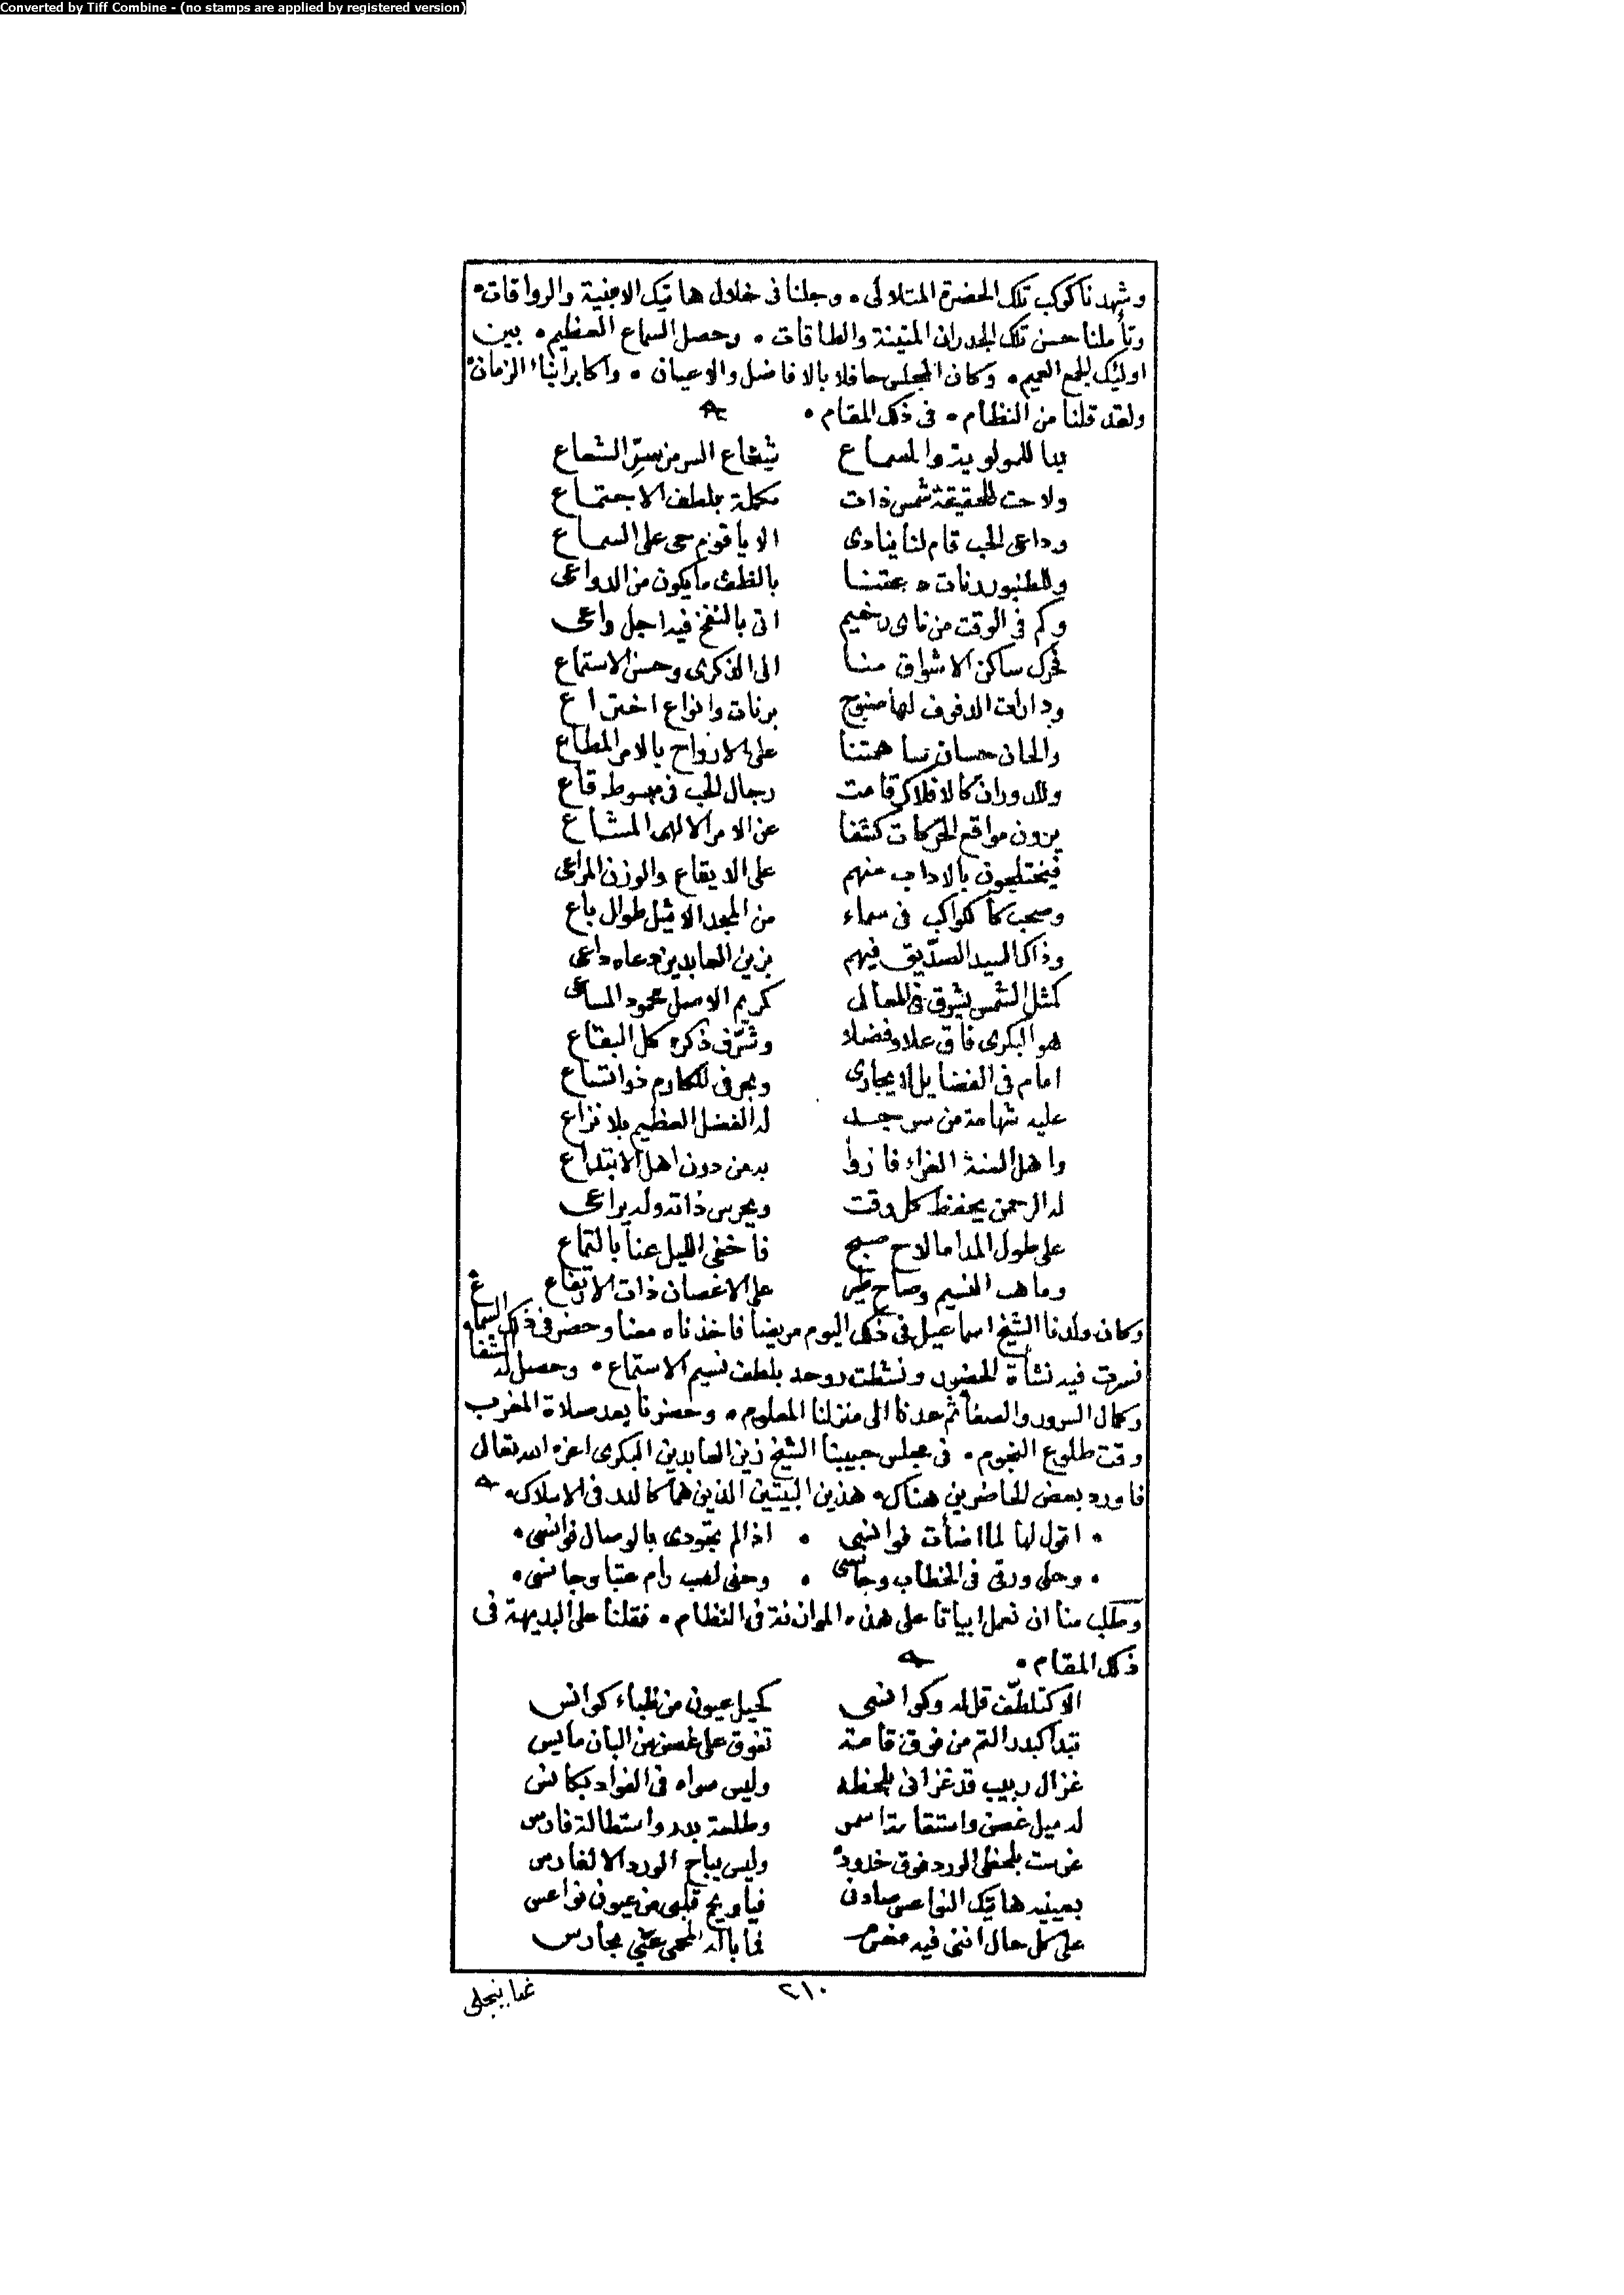 Converted by Tiff Combine - (no stamps are applied by registered version)
وشهدنا كوكب تلك الحضرة المتلالى • وجلنا فى خلال هاتيك الابنية والرواقات •
وتأملنا حسن تلك الجدران المتينة والطاقات • وحصل السماع العظيم • بين
اوليك الجمع العميم • وكان المجلس حافلا بالافاضل والاعيان • واكابر ابناء الزمان •
ولقد قلنا من النظام • فى ذلك المقام •
بدا للمولوية والسماع شعاع السر من الشعاع
ولاحت للحقيقة شمس ذات مكملة بلطف الاجتماع
وداعى الحب قام لنا ينادى الا يا قوم حى على السماع
وللطنبور رنات دعتنا بالطف ما يكون من الدواعى
وكم فى الوقت من ناى رخيم اتى بالنفخ فيه اجل واعى
فحرك ساكن الاشواق منا الى الذكرى وحسن الاستماع
ودارات الدفوف لها ضجيج برنات وانواع اختراع
والحان حسان على الارواح بالامر المطاع
وللدوران كالافلاك قامت رجال الحب فى مبسوط قاع
يرون مواقع الحركات كشفا عن الامر الالهى المشاع
بالاداب منهم على الايقاع والوزن المراعى
وصحب كالكواكب فى سماء من المجد الاثيل طوال باع
وذاك السيد الصدّيق فيهم بزين العابدين دعاه داعى
كمثل الشمس يشرق فى المعالى كريم الاصل محمود المساعى
هو البكرى فاق علا وفضلا وشرّف ذكره كل البقاع
امام فى الفضايل لا يجارى وبحر فى المكارم ذو اتساع
عليه شهامة من سر جد له الفضل العظيم بلا نزاع
واهل السنة الغراء فازوا به من دون اهل الابتداع
له الرحمن يحفظ كل وقت ويحرس ذاته وله يراعى
على طول المدا ما لاح صبح فاخفى الليل عنا بالتماع
وما هب النسيم وصاح طير على الاغصان ذات الارتفاع
وكان ولدنا الشيخ اسماعيل فى ذلك اليوم مريضا فاخذناه معنا وحضر فى ذلك السماع
فسرت فيه نشأة الحضور ونشطت روحه بلطف نسيم الاستماع • وحصل له الشفا
وكمال السرور والصفا ثم عدنا الى منزلنا المعلوم • وحضرنا بعد صلاة المغرب
وقت طلوع النجوم • فى مجلس حبيبنا الشيخ زين العابدين البكرى اعزه الله تعالى
فاورد بعض الحاضرين هناك • هذين البيتين الذين هما كالدر فى الاسلاك •
• اقول لها لما اضأت فوانسى • اذا لم تجودى بالوصال فوانسى •
• وحلى ورقى فى الخطاب وجانسى • وحنى لصب رام عتبا وجانسى •
وطلب منا ان نعمل ابياتا على هذه الموازنة فى النظام • فقلنا على البديهة فى
ذلك المقام •
الا كتلطّف قل له وكوانسى كحيل عيون من ظباء كوانس
تبدا كبدر التم من فوق قامة تفوق على غصن من البان مايس
غزال ربيب قد غزانى بلحظه وليس سواه فى الفواد بكانس
له ميل غصن واستقامة اسمر وطلعة بدر واستطالة فارس
غرست بلحظى الورد فوق خدوده وليس يباح الورد الا لغارس
بعينيه هاتيك النواعس صادنى فيا ويح قلبى من عيون نواعس
على كل حال اننى فيه مغرم فما باله المحى عنّي
٢١٠
غدا ينجلى